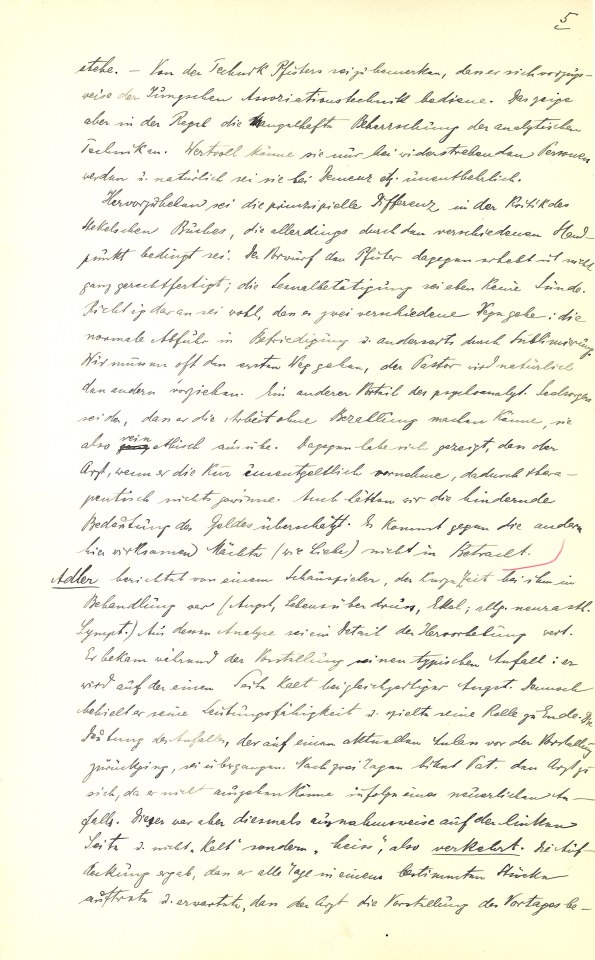 5
stehe. – Von der Technik Pfisters sei zu bemerken, dass er sich vorzugs-
weise der Jungschen Assoziationstechnik bediene. Das zeige
aber in der Regel die mangelhafte Beherrschung der analytischen
Techniken. Wertvoll könne sie nur bei widerstrebenden Personen
werden u. natürlich sei sie bei Demenz etc. unentbehrlich.
Hervorzuheben sei die prinzipielle Differenz in der Kritik des
Stekelschen Buches, die allerdings durch den verschiedenen Stand-
punkt bedingt sei. Der Vorwurf den Pfister dagegen erhebt ist nicht
ganz gerechtfertigt; die Sexualbetätigung sei eben keine Sünde.
Richtig daran sei wohl, dass es zwei verschiedene Wege gebe: die
normale Abfuhr in Befriedigung u. anderseits durch Sublimierung.
Wir müssen oft den ersten Weg gehen, der Pastor wird natürlich
den andern vorziehen. Ein anderer Vorteil des psychoanalyt. Seelsorgers
sei der, dass er die Arbeit ohne Bezahlung machen könne, sie
also rein ethisch ausübe. Dagegen habe sich gezeigt, dass der
Arzt, wenn er die Kur unentgeltlich vornehme, dadurch thera-
peutisch nichts gewinne. Auch hätten wir die hindernde
Bedeutung des Geldes überschätzt. Es kommt gegen die andern
hier wirksamen Mächte (wie Liebe) nicht in Betracht.
Adler berichtet von einem Schauspieler, der kurze Zeit bei ihm in
Behandlung war (Angst, Lebensüberdruss, Ekel; allg. neurasth.
Sympt.) Aus dessen Analyse sei ein Detail der Hervorhebung wert.
Er bekam während der Vorstellung seinen typischen Anfall: er
wird auf der einen Seite kalt bei gleichzeitiger Angst. Dennoch
behielt er seine Leistungsfähigkeit u. spielte seine Rolle zu Ende. Die
Deutung des Anfalls, der auf einen aktuellen Anlass vor der Vorstellung
zurückging, sei übergangen. Nach zwei Tagen bittet Pat. den Arzt zu
sich, da er nicht ausgehen könne infolge eines neuerlichen An-
falls. Dieser war aber diesmals ausnahmsweise auf der linken
Seite u. nicht „kalt" sondern „heiss", also verkehrt. Die Auf-
deckung ergab, dass er alle Tage in einem bestimmten Stücke
auftrete u. erwartete, dass der Arzt die Vorstellung des Vortages be-